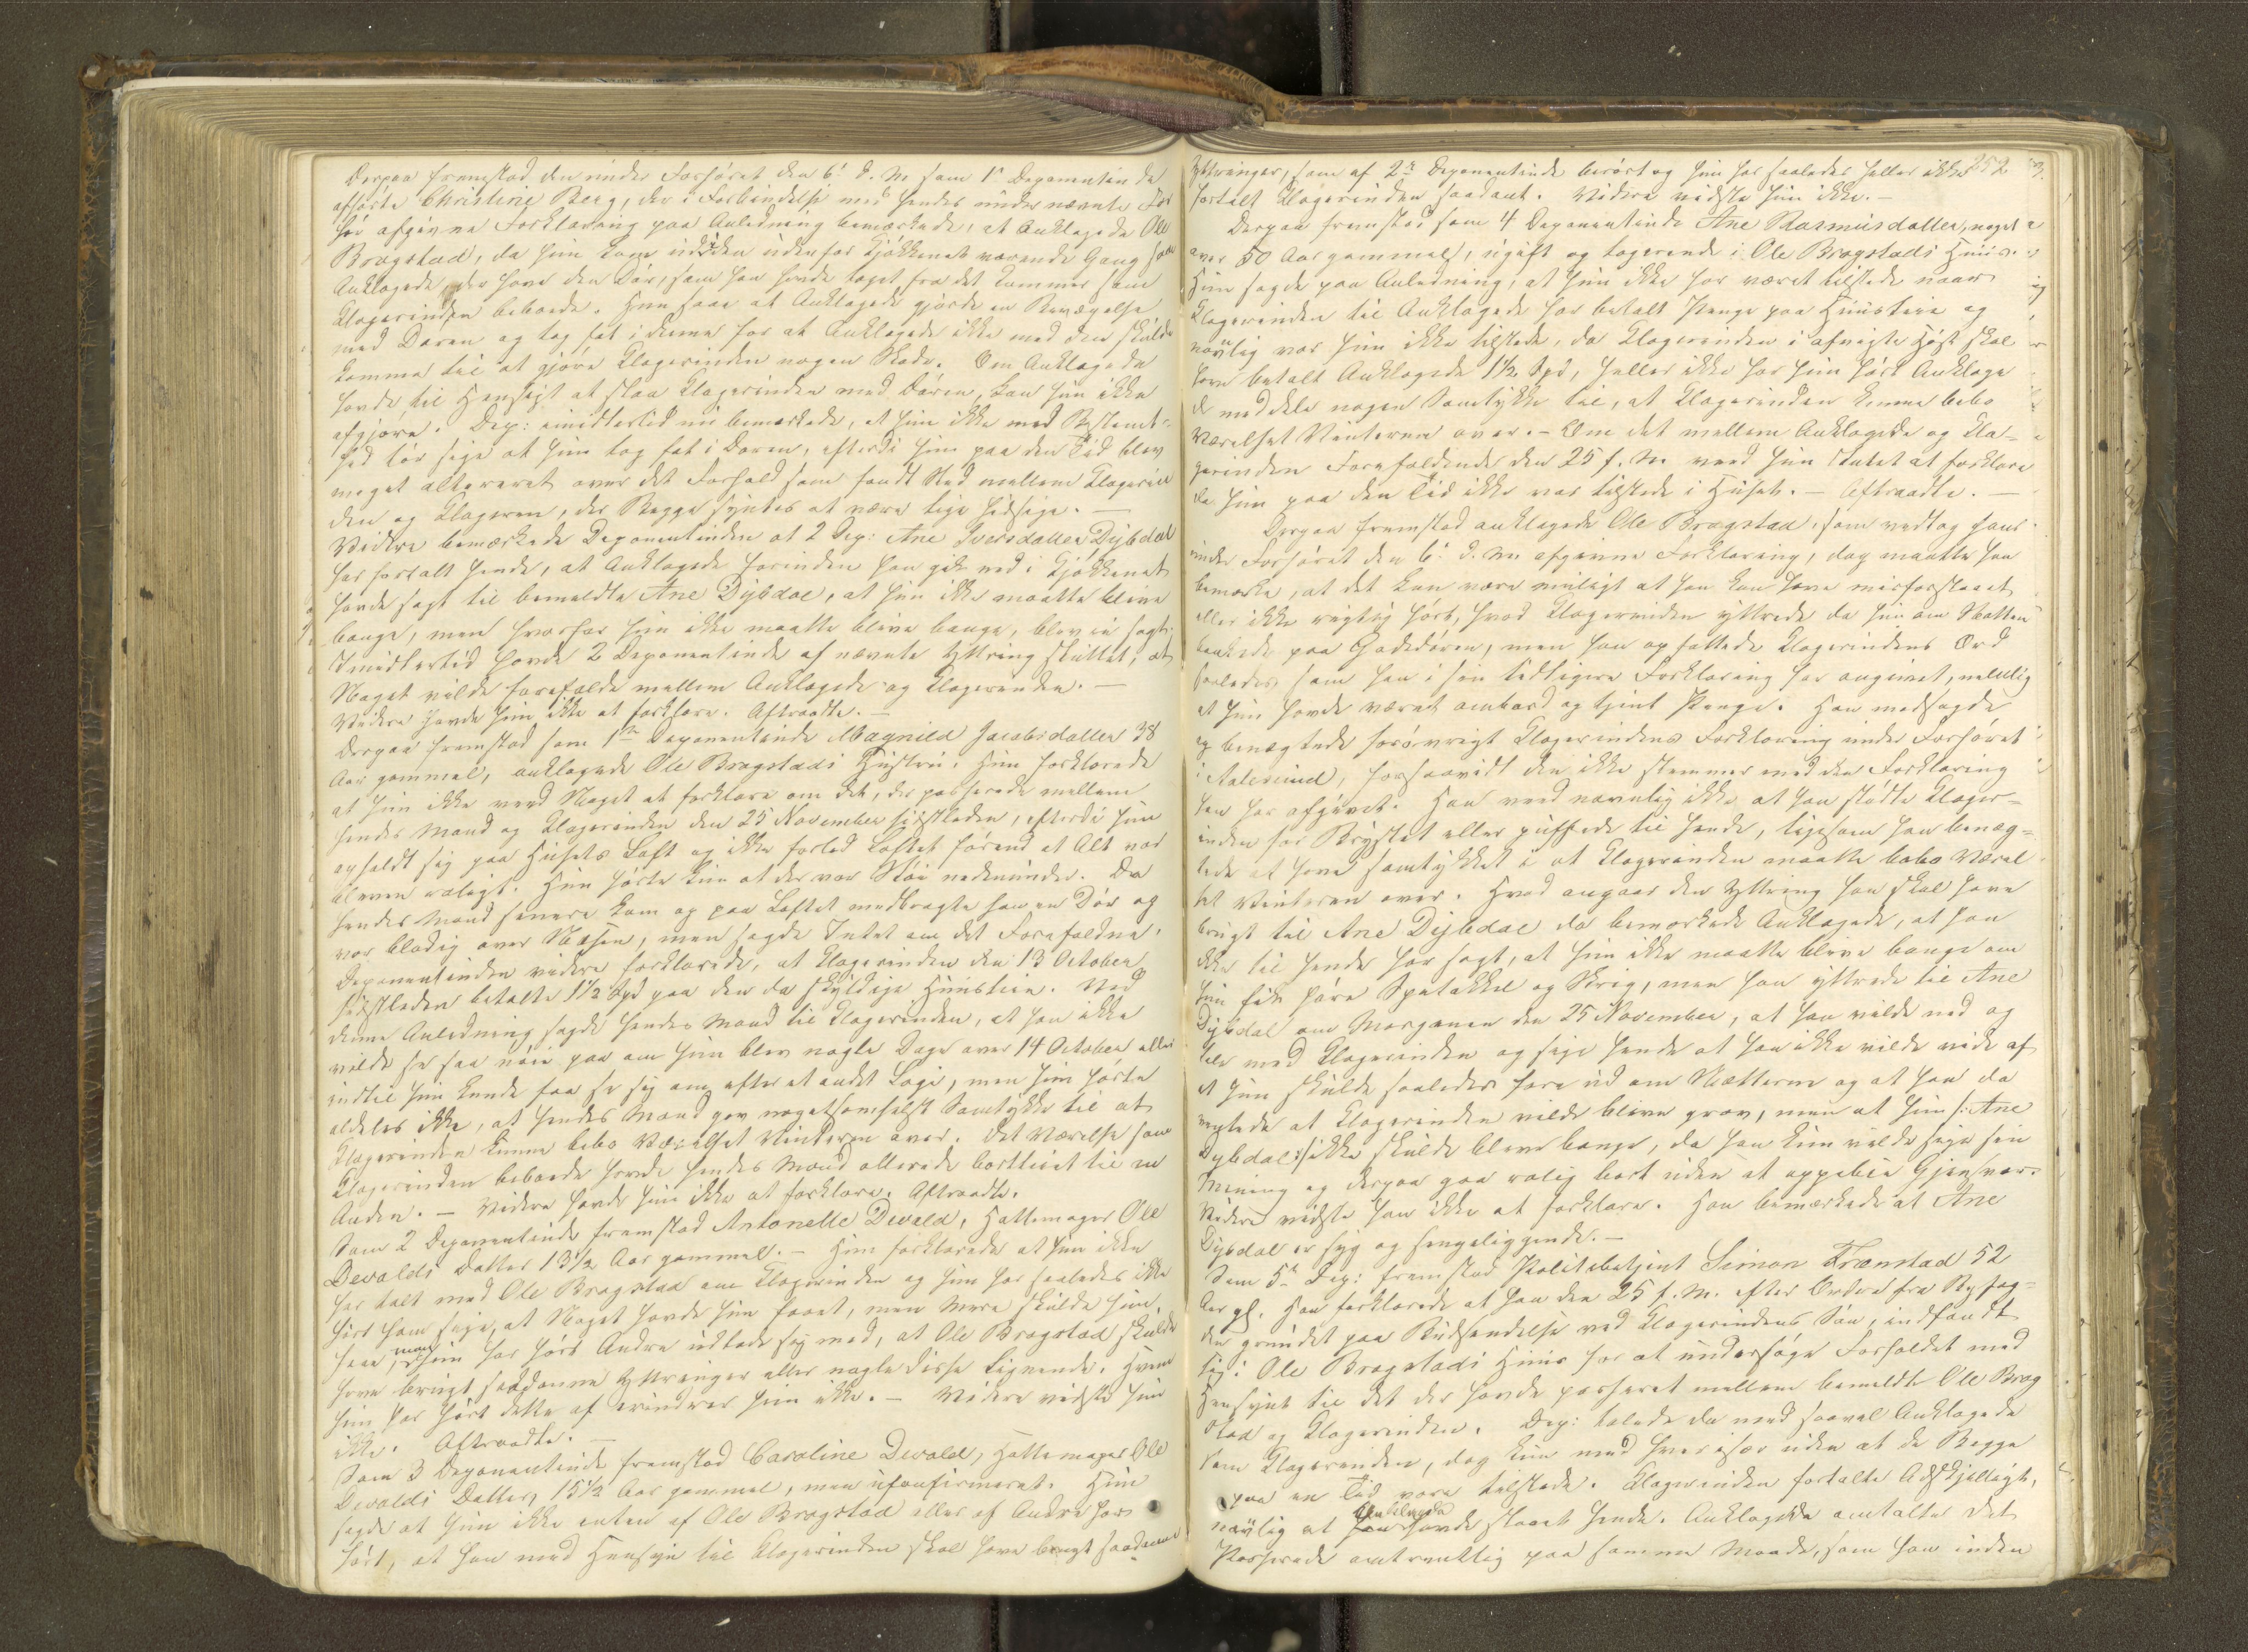 Derpaa fremstod den under Forhøret den 6' d. M. som 1' Deponentinde
afhørte Christine Berg, der i Forbindelse med hendes under nævnte For
hør afgivne Forklaring paa Anledning bemærkede, at Anklagede Ole
Bragstad, da hun kom ud i den udenfor Kjøkkenet værende Gang saa
Anklagede, der have den Dør, som han havde taget fra det Kammer som
Klagerinden beboede. Hun saae at Anklagede gjorde en Bevægelse
med Døren og tog fat i denne for at Anklagede ikke med den skulde
komme til at gjøre Klagerinden nogen Skade. Om Anklagede
havde til Hensigt at slaa Klagerinden med Døren, kan hun ikke
afgjøre. Dep: imidlertid nu bemærkede, at hun ikke med Bestemt-
hed tør sige at hun tog fat i Døren, efterdi hun paa den Tid blev
meget altereret over det Forhold som fandt Sted mellem Klagerin
den og Klageren, der Begge syntes at være lige hidsige. —
Videre bemærkede Deponentinden at 2 Dep: Ane Iversdatter Dybdal
har fortalt hende, at Anklagede forinden han gik ned i Kjøkkenet
havde sagt til bemeldte Ane Dybdal, at hun ikke maatte blive
bange, men hvorfor hun ikke maatte blive bange, blev ei sagt.
Imidlertid havde 2 Deponentinde af nævnte Yttring sluttet, at
Noget vilde forefalde mellem Anklagede og Klagerinden. —
Videre havde hun ikke at forklare. Aftraadte. —
Derpaa fremstod som 1ste Deponentinde Magnild Jacobsdatter 38
Aar gammel, anklagede Ole Bragstads Hustru. Hun forklarede
at hun ikke veed Noget at forklare om det, der passerede mellem
hendes Mand og Klagerinden den 25 November sidstleden, efterdi hun
opholdt sig paa Husets Loft og ikke forlod Loftet førend at Alt var
bleven roligt. Hun hørte kun at der var Støi nedenunder. Da
hendes Mand senere kom op paa Loftet medbragte han en Dør og
var blodig over Næsen, men sagde Intet om det Forefaldne.
Deponentinden videre forklarede, at Klagerinden den 13 October
sidstleden betalte 1½ Spd paa den da skyldige Huusleie. Ved
denne Anledning sagde hendes Mand til Klagerinden, at han ikke
vilde se saa nøie paa om hun blev nogle Dage over 14 October eller
indtil hun kunde faa se sig om efter et andet Logi, men hun hørte
aldeles ikke, at hendes Mand gav nogetsomhelst Samtykke til at
Klagerinden kunne bebo Værelset Vinteren over. Det Værelse som
Klagerinden beboede havde hendes Mand allerede bortleiet til en
Anden. — Videre havde hun ikke at forklare. Aftraadte.
Som 2 Deponentinde fremstod Antonette Devald, Hattemager Ole
Devalds Datter 13½ Aar gammel. — Hun forklarede at hun ikke
har talt med Ole Bragstad om Klagerinden og hun har saaledes ikke
hørt ham sige, at Noget havde hun faaet, men Mere skulde hun
faae, men hun har hørt Andre udlade sig med, at Ole Bragstad skulde
have brugt saadanne Yttringer eller nogle disse lignende. Hvem
hun har hørt dette af erindrer hun ikke. — Videre vidste hun
ikke. Aftraadte. —
Som 3 Deponentinde fremstod Caroline Devold, Hattemager Ole
Devolds Datter, 15½ Aar gammel, men ukonfirmeret. Hun
sagde at hun ikke enten af Ole Bragstad eller af Andre har
hørt, at han med Hensyn til Klagerinden skal have brugt saadanne
Yttringer, som af 2de Deponentinde berørt og hun har saaledes heller ikke 252
fortalt Klagerinden saadant. Videre vidste hun ikke. —
Derpaa fremstod som 4 Deponentinde Ane Rasmusdatter, noget
over 50 Aar gammel, ugift og logerende i Ole Bragstads Huus.
Hun sagde paa Anledning, at hun ikke har været tilstede naar
Klagerinden til Anklagede har betalt Penge paa Huusleie og
navnlig var hun ikke tilstede, da Klagerinden i afvigte Høst skal
have betalt Anklagede 1½ Spd, heller ikke har hun hørt Anklage
de meddele nogen Samtykke til, at Klagerinden kunne bebo
Værelset Vinteren over. — Om det mellem Anklagede og Kla-
gerinden Forefaldende den 25 f. M. veed hun Intet at forklare
da hun paa den Tid ikke var tilstede i Huset. — Aftraadte. —
Derpaa fremstod anklagede Ole Bragstad, som vedtog hans
under Forhøret den 6' d. M. afgivne Forklaring, dog maatte han
bemærke, at det kan være muligt at han kan have misforstaaet
eller ikke rigtig hørt, hvad Klagerinden yttrede da hun om Natten
bankede paa Gadedøren, men han opfattede Klagerindens Ord
saaledes som han i sin tidligere Forklaring har angivet, nemlig
at hun havde været ombord og tjent Penge. Han modsagde
og benægtede forøvrigt Klagerindens Forklaring under Forhøret
i Aalesund, forsaavidt den ikke stemmer med den Forklaring
han har afgivet. Han veed navnlig ikke at han stødte Klager-
inden for Brystet eller puffede til hende, ligesom han benæg-
tede at have samtykket i at Klagerinden maatte bebo Værel
set Vinteren over. Hvad angaar den Yttring han skal have
brugt til Ane Dybdal da bemærkede Anklagede, at han
ikke til hende har sagt, at hun ikke maatte blive bange om
hun fik høre Spetakkel og Skrig, men han yttrede til Ane
Dybdal om Morgenen den 25 November, at han vilde ned og
tale med Klagerinden og sige hende at han ikke vilde vide af
at hun skulde saaledes fare ud om Nætterne og at han da
ventede at Klagerinden vilde blive grov, men at hun /: Ane
Dybdal :/ ikke skulde blive bange, da han kun vilde sige sin
Mening og derpaa gaa rolig bort uden at oppebie Gjensvar.
Videre vidste han ikke at forklare. Han bemærkede at Ane
Dybdal er syg og sengeliggende. —
Som 5te Dep: fremstod Politibetjent Simon Trænstad 52
Aar gl. Han forklarede at han den 25 f. M. efter Ordre fra Byfog-
den grundet paa Budsendelse ved Klagerindens Søn, indfandt
sig i Ole Bragstads Huus for at undersøge Forholdet med
Hensynt til det der havde passeret mellem bemeldte Ole Brag
stad og Klagerinden. Dep: talede da med saavel Anklagede
som Klagerinden, dog kun med hver især uden at de Begge
paa en Tid vare tilstede. Klagerinden fortalte Adskjelligt,
navnlig at Anklagede havde slaaet hende. Anklagede omtalte det
Passerede omtrentlig paa samme Maade, som han inden